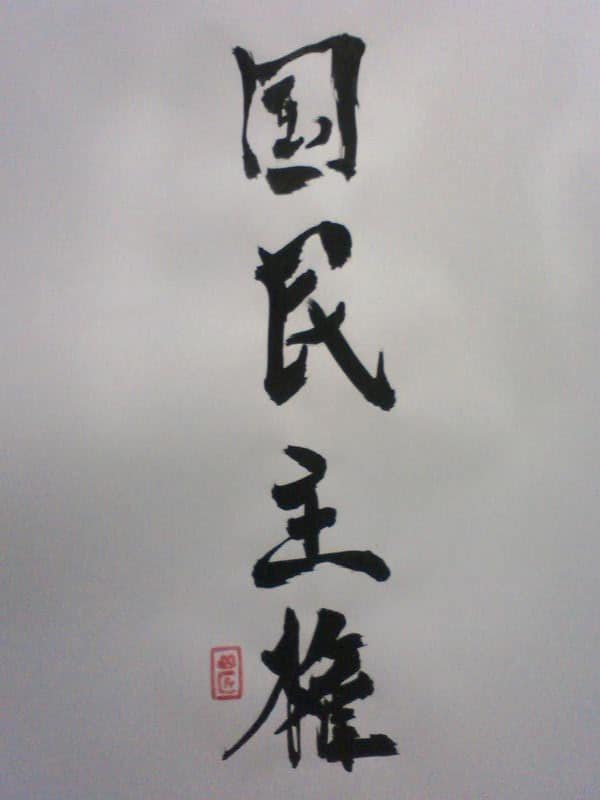 国民主権